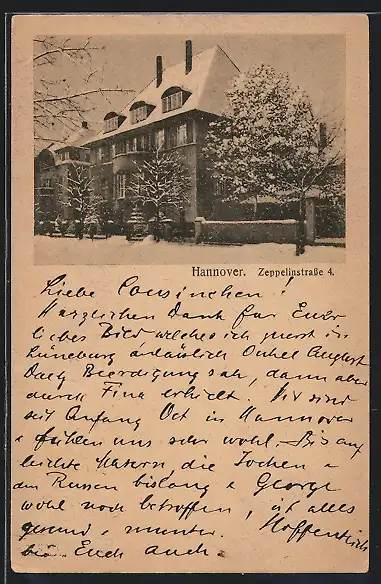 Hannover. Zeppelinstraße 4.
Liebe Cousinchen!
Herzlichen Dank für Euer
liebes Bild, welches ich zuerst in
Lüneburg anläßlich Onkel August
Beerdigung sah, dann aber
durch erhielt. Wir sind
seit Anfang Oct in Hannover
u fühlen uns sehr wohl. Bis auf
leichte Masern, die Jochen u
den bislang u George
wohl noch betroffen, ist alles
gesund u munter. Hoffentlich
bei Euch auch.